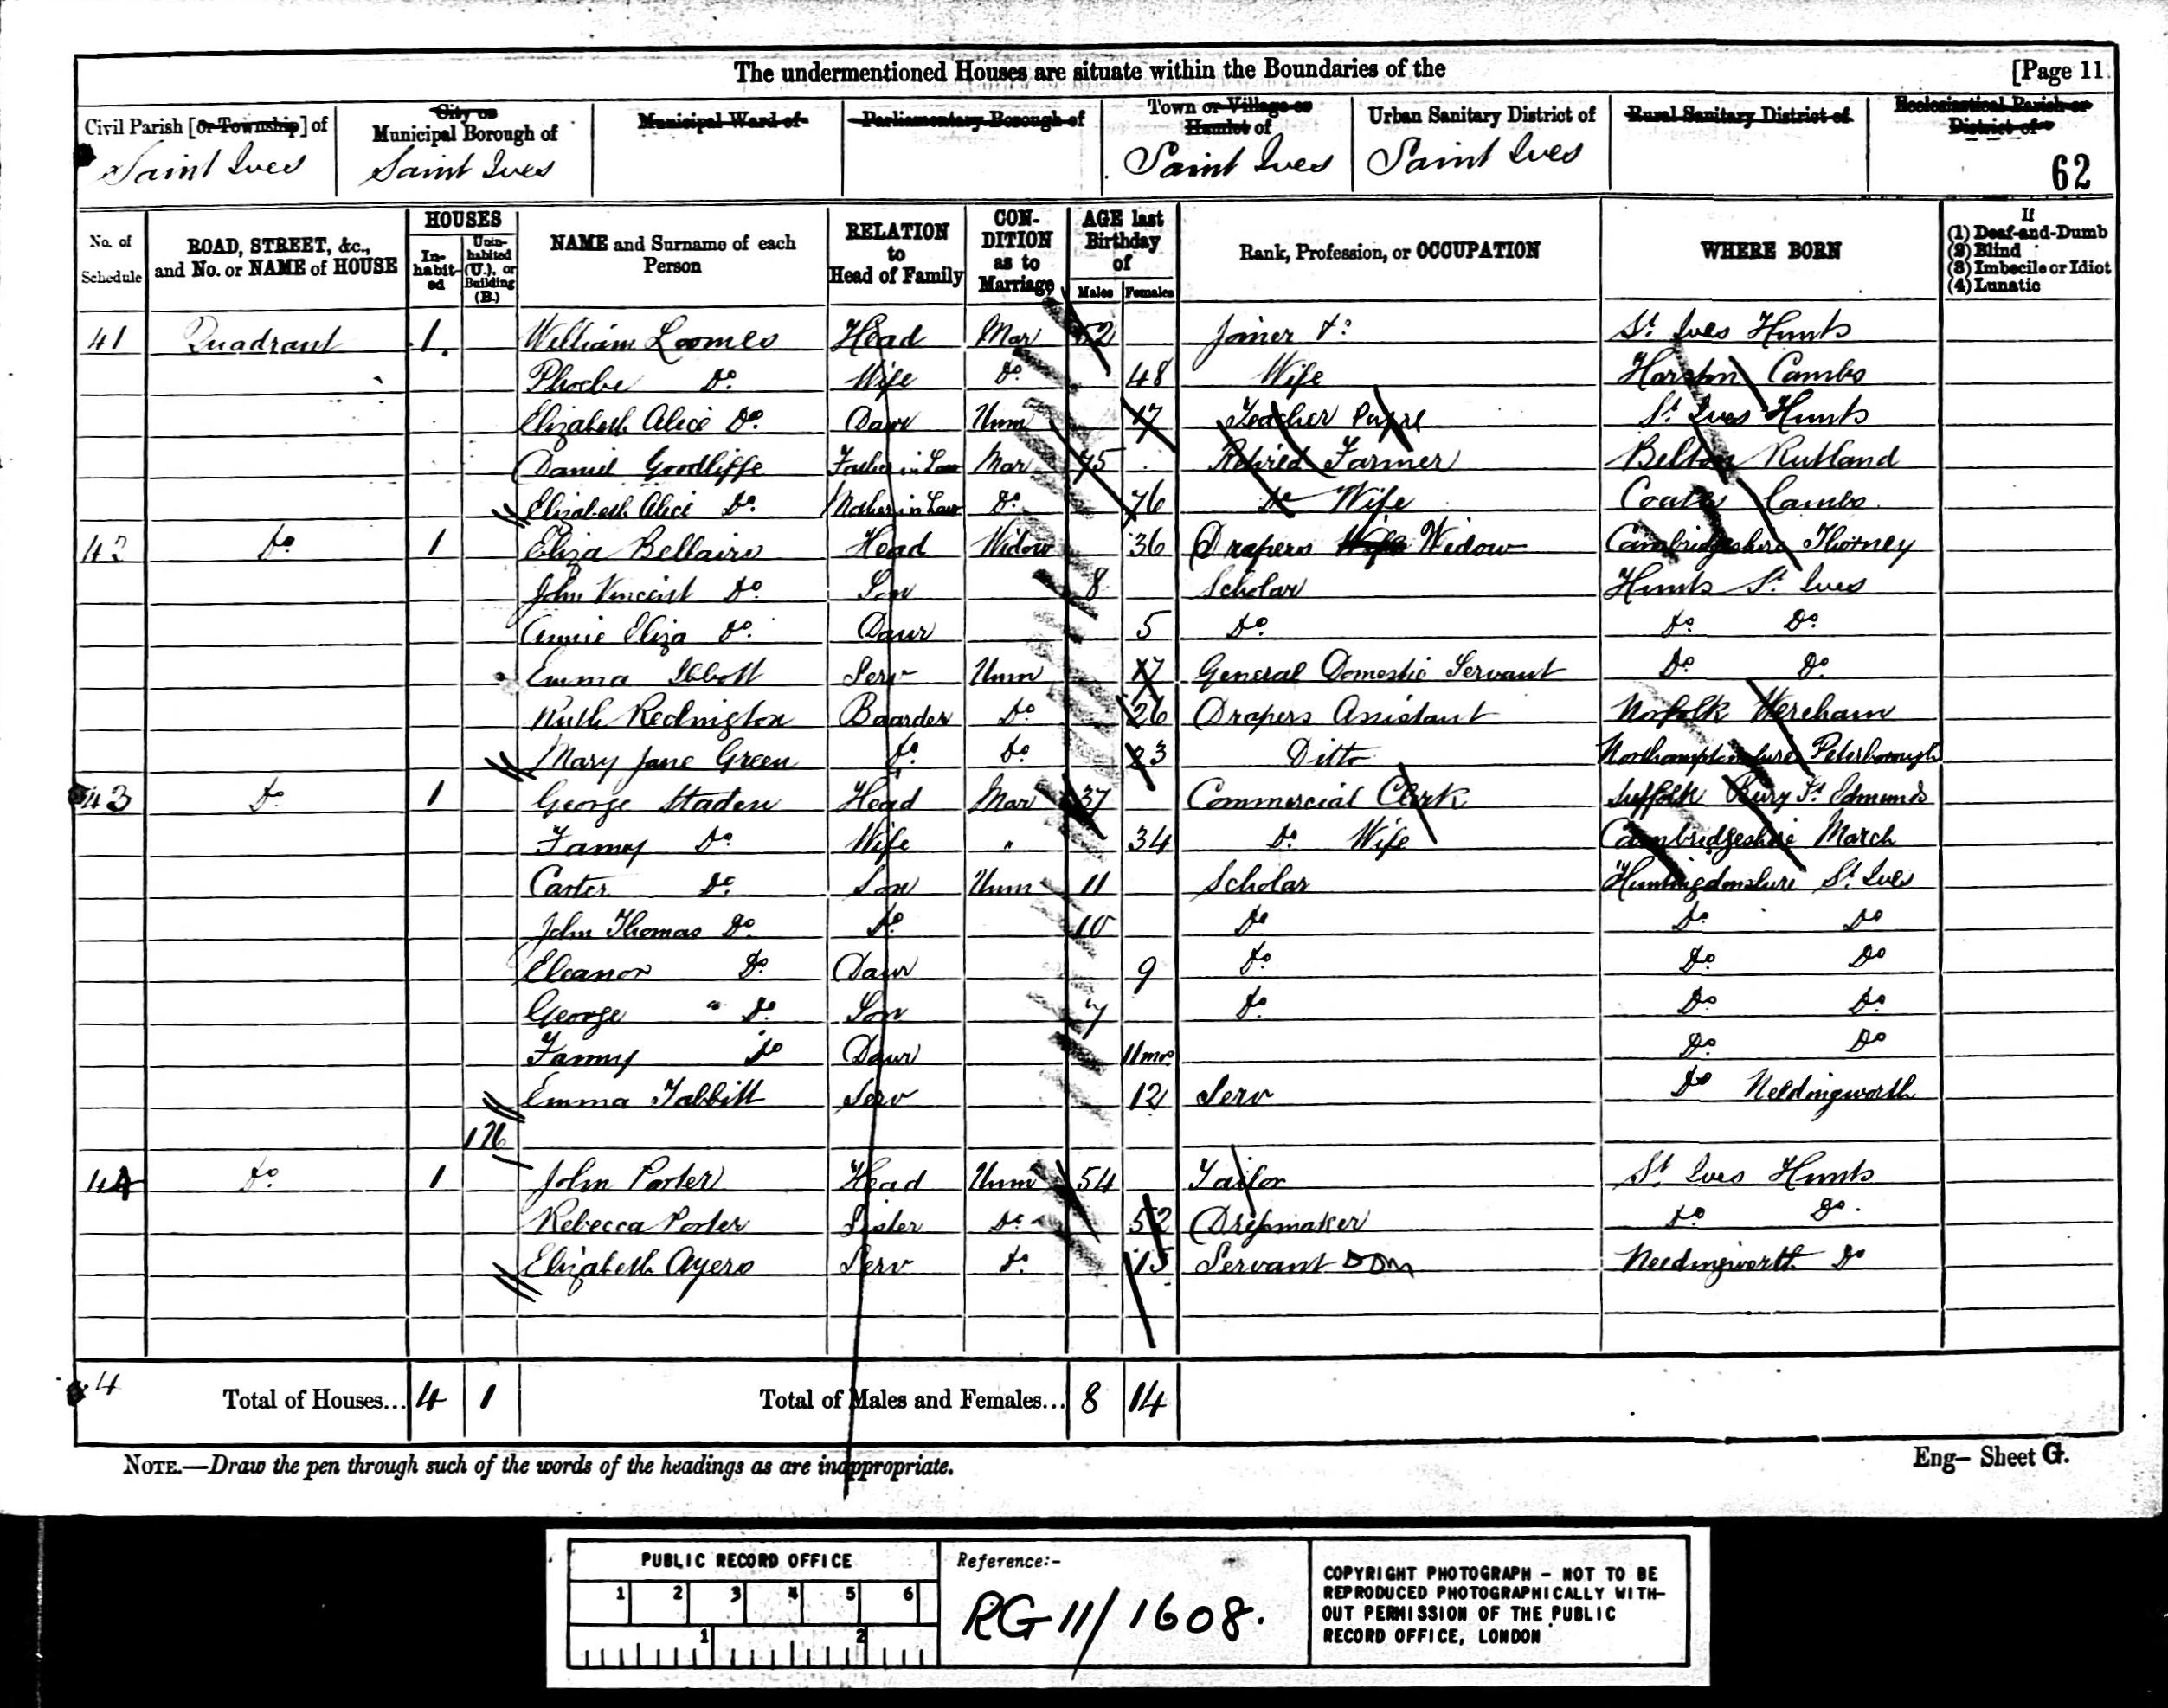 The undermentioned Houses are situate within the Boundaries of the [Page 11
Civil Parish [or Township] of
City or Municipal Borough of
Municipal Ward of
Parliamentary Borough of
Town or Village or Hamlet of
Urban Sanitary District of
Rural Sanitary District of
Ecclesiastical Parish or District of
Saint Ives Saint Ives Saint Ives Saint Ives
62
No. of Schedule
ROAD, STREET, &c., and No. or NAME of HOUSE
HOUSES
In-habit-ed
Unin-habited (U.), or Building (B.)
NAME and Surname of each Person
RELATION to Head of Family
CON-DITION as to Marriage
AGE last Birthday of
Males Females
Rank, Profession, or OCCUPATION
WHERE BORN
If
(1) Deaf-and-Dumb
(2) Blind
(3) Imbecile or Idiot
(4) Lunatic
41 Quadrant 1 William Loomes Head Mar 52 Joiner St. Ives Hunts
Phoebe Do. Wife Do. 48 Wife Harston Cambs
Elizabeth Alice Do. Daur Unm 17 Teacher St. Ives Hunts
Daniel Goodliffe Father in Law Mar 75 Retired Farmer Belton Rutland
Elizabeth Alice Do. Mother in Law Do. 76 Do Wife Coates Cambs.
42 Do. 1 Eliza Bellairs Head Widow 36 Drapers Wife Widow Cambridgeshire Thorney
John Vincent Do. Son 8 Scholar Hunts St. Ives
Annie Eliza Do. Daur 5 Do. Do. Do.
Emma Ibbott Serv Unm 17 General Domestic Servant Do. Do.
Ruth Redington Boarder Do. 26 Drapers Assistant Norfolk Wereham
Mary Jane Green Do. Do. 23 Ditto Northamptonshire Peterborough
43 Do. 1 George Staden Head Mar 37 Commercial Clerk Suffolk Bury St. Edmunds
Fanny Do. Wife " 34 Do. Wife Cambridgeshire March
Carter Do. Son Unm 11 Scholar Huntingdonshire St. Ives
John Thomas Do. Do. 10 Do Do. Do
Eleanor Do. Daur 9 Do. Do. Do
George " Do. Son 7 Do. Do. Do.
Fanny Do Daur 11mos Do. Do
Emma Tabbitt Serv 12 Serv Do Neldingworth
1 U
44 Do. 1 John Porter Head Unm 54 Tailor St. Ives Hunts
Rebecca Porter Sister Do. 52 Dressmaker Do. Do.
Elizabeth Ayers Serv Do. 15 Servant Dom Needingworth Do
4 Total of Houses... 4 1 Total of Males and Females... 8 14
NOTE.—Draw the pen through such of the words of the headings as are inappropriate.
Eng– Sheet G.
PUBLIC RECORD OFFICE
1 2 3 4 5 6
1 2
Reference:-
RG 11/1608.
COPYRIGHT PHOTOGRAPH - NOT TO BE
REPRODUCED PHOTOGRAPHICALLY WITH-
OUT PERMISSION OF THE PUBLIC
RECORD OFFICE, LONDON